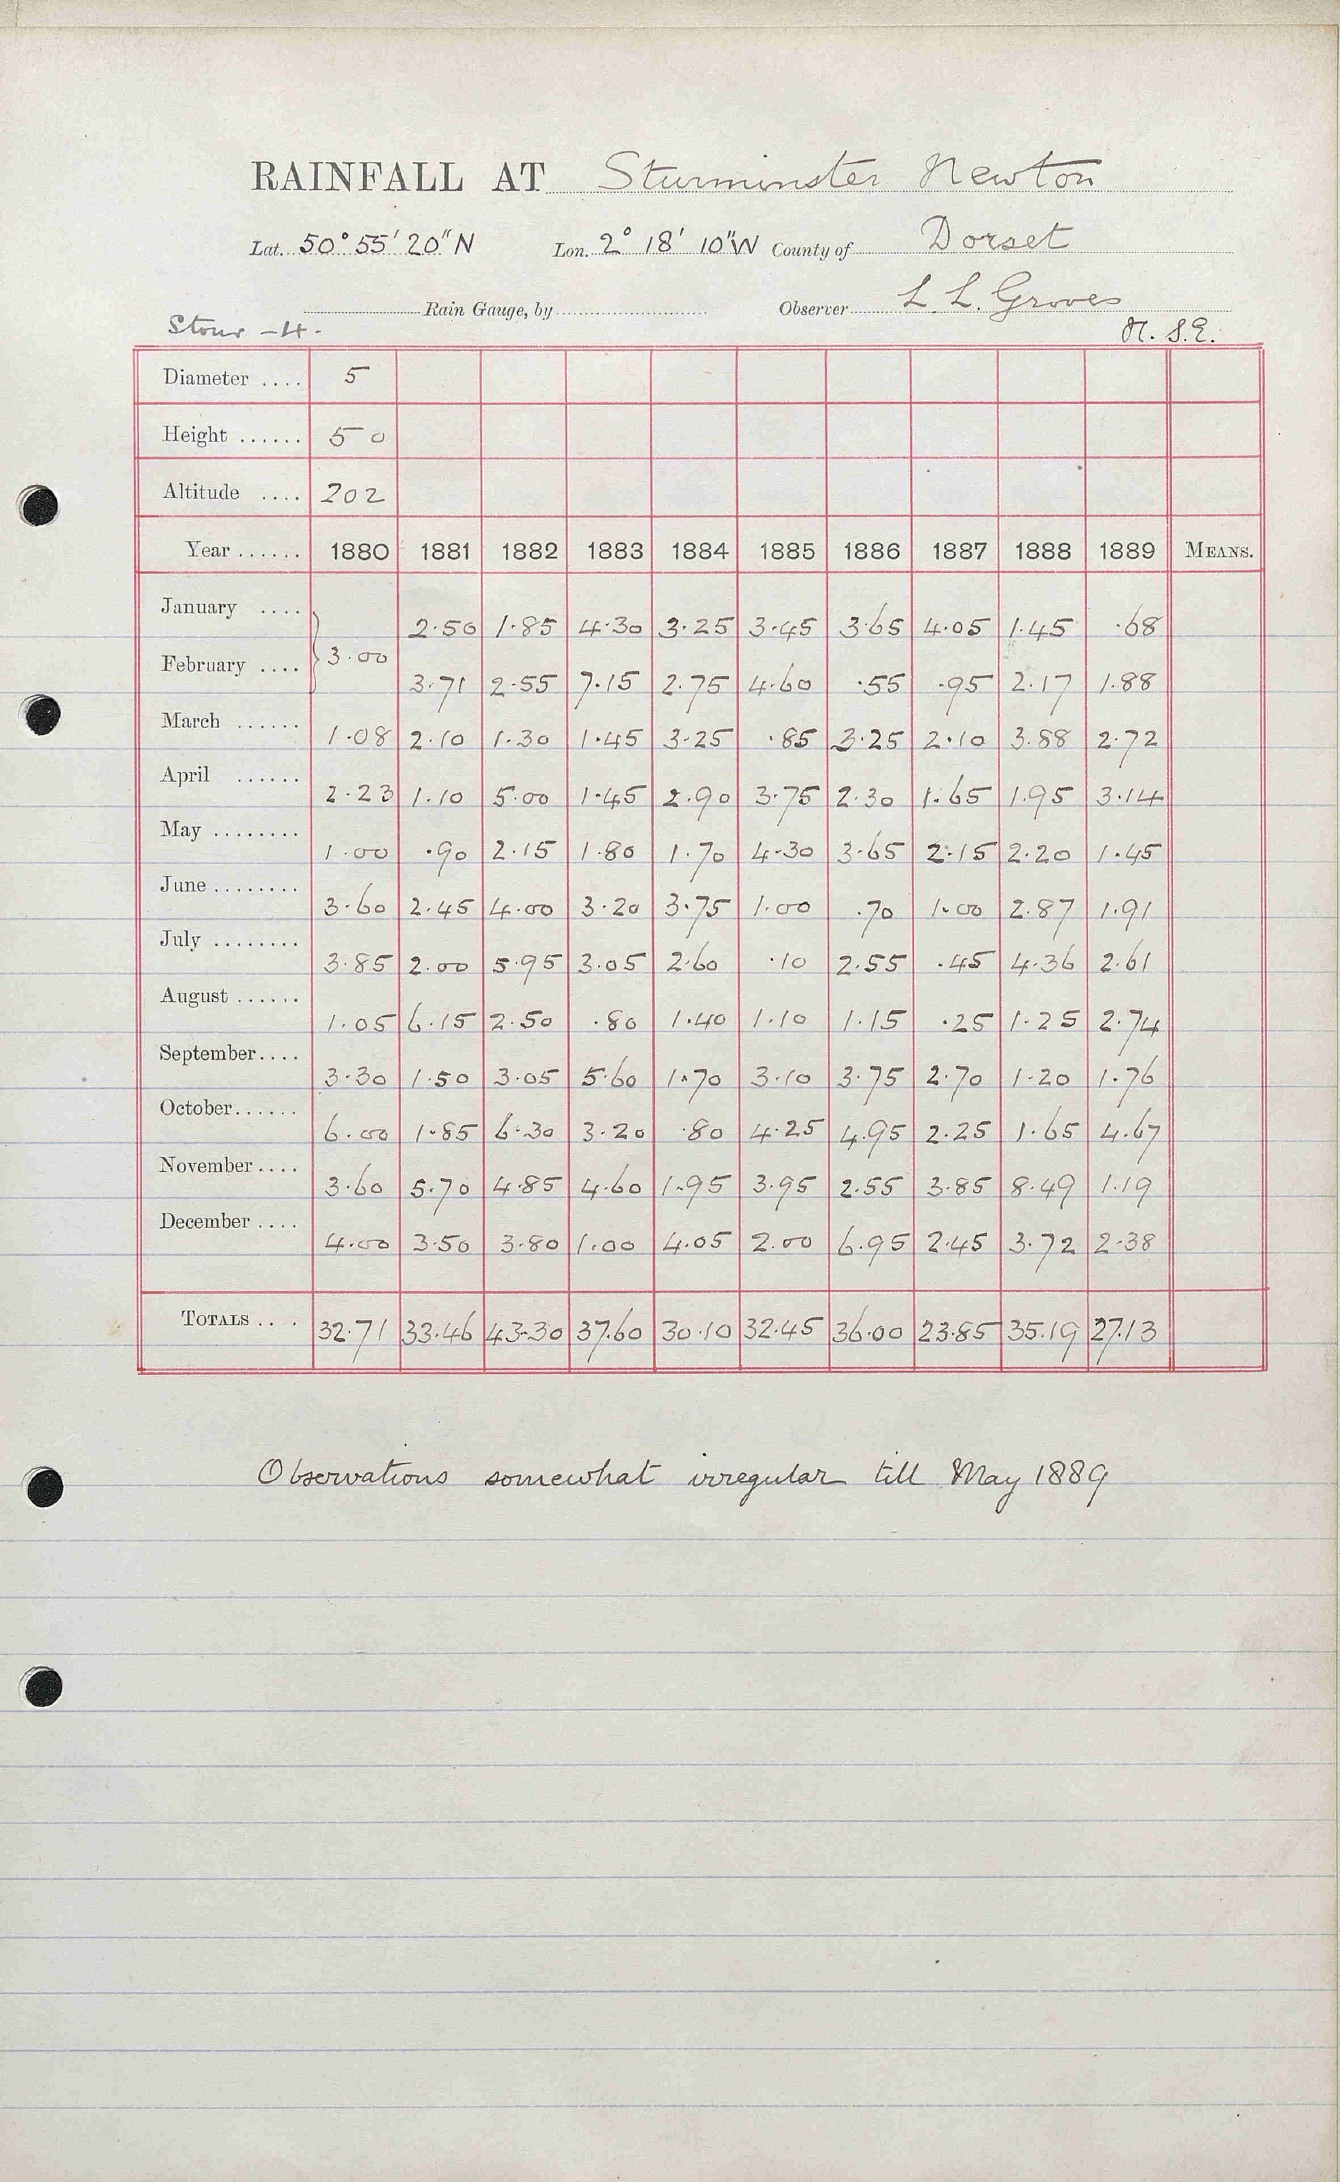 RAINFALL AT Sturminster Newton
Lat. 50° 55' 20" N Lon. 2° 18' 10" W County of Dorset
Rain Gauge, by Observer L. L. Groves
Stour -4.
Diameter .... 5
Height ...... 50
Altitude .... 202
Year ...... 1880 1881 1882 1883 1884 1885 1886 1887 1888 1889 MEANS.
January .... 2.50 1.85 4.30 3.25 3.45 3.65 4.05 1.45 .68
February .... 3.00 3.71 2.55 7.15 2.75 4.60 .55 .95 2.17 1.88
March ...... 1.08 2.10 1.30 1.45 3.25 .85 3.25 2.10 3.88 2.72
April ...... 2.23 1.10 5.00 1.45 2.90 3.75 2.30 1.65 1.95 3.14
May ........ 1.00 .90 2.15 1.80 1.70 4.30 3.65 2.15 2.20 1.45
June ........ 3.60 2.45 4.00 3.20 3.75 1.00 .70 1.00 2.87 1.91
July ........ 3.85 2.00 5.95 3.05 2.60 .10 2.55 .45 4.36 2.61
August ...... 1.05 6.15 2.50 .80 1.40 1.10 1.15 .25 1.25 2.74
September.... 3.30 1.50 3.05 5.60 1.70 3.10 3.75 2.70 1.20 1.76
October...... 6.00 1.85 6.30 3.20 .80 4.25 4.95 2.25 1.65 4.67
November .... 3.60 5.70 4.85 4.60 1.95 3.95 2.55 3.85 8.49 1.19
December .... 4.00 3.50 3.80 1.00 4.05 2.00 6.95 2.45 3.72 2.38
TOTALS .... 32.71 33.46 43.30 37.60 30.10 32.45 36.00 23.85 35.19 27.13
Observations somewhat irregular till May 1889